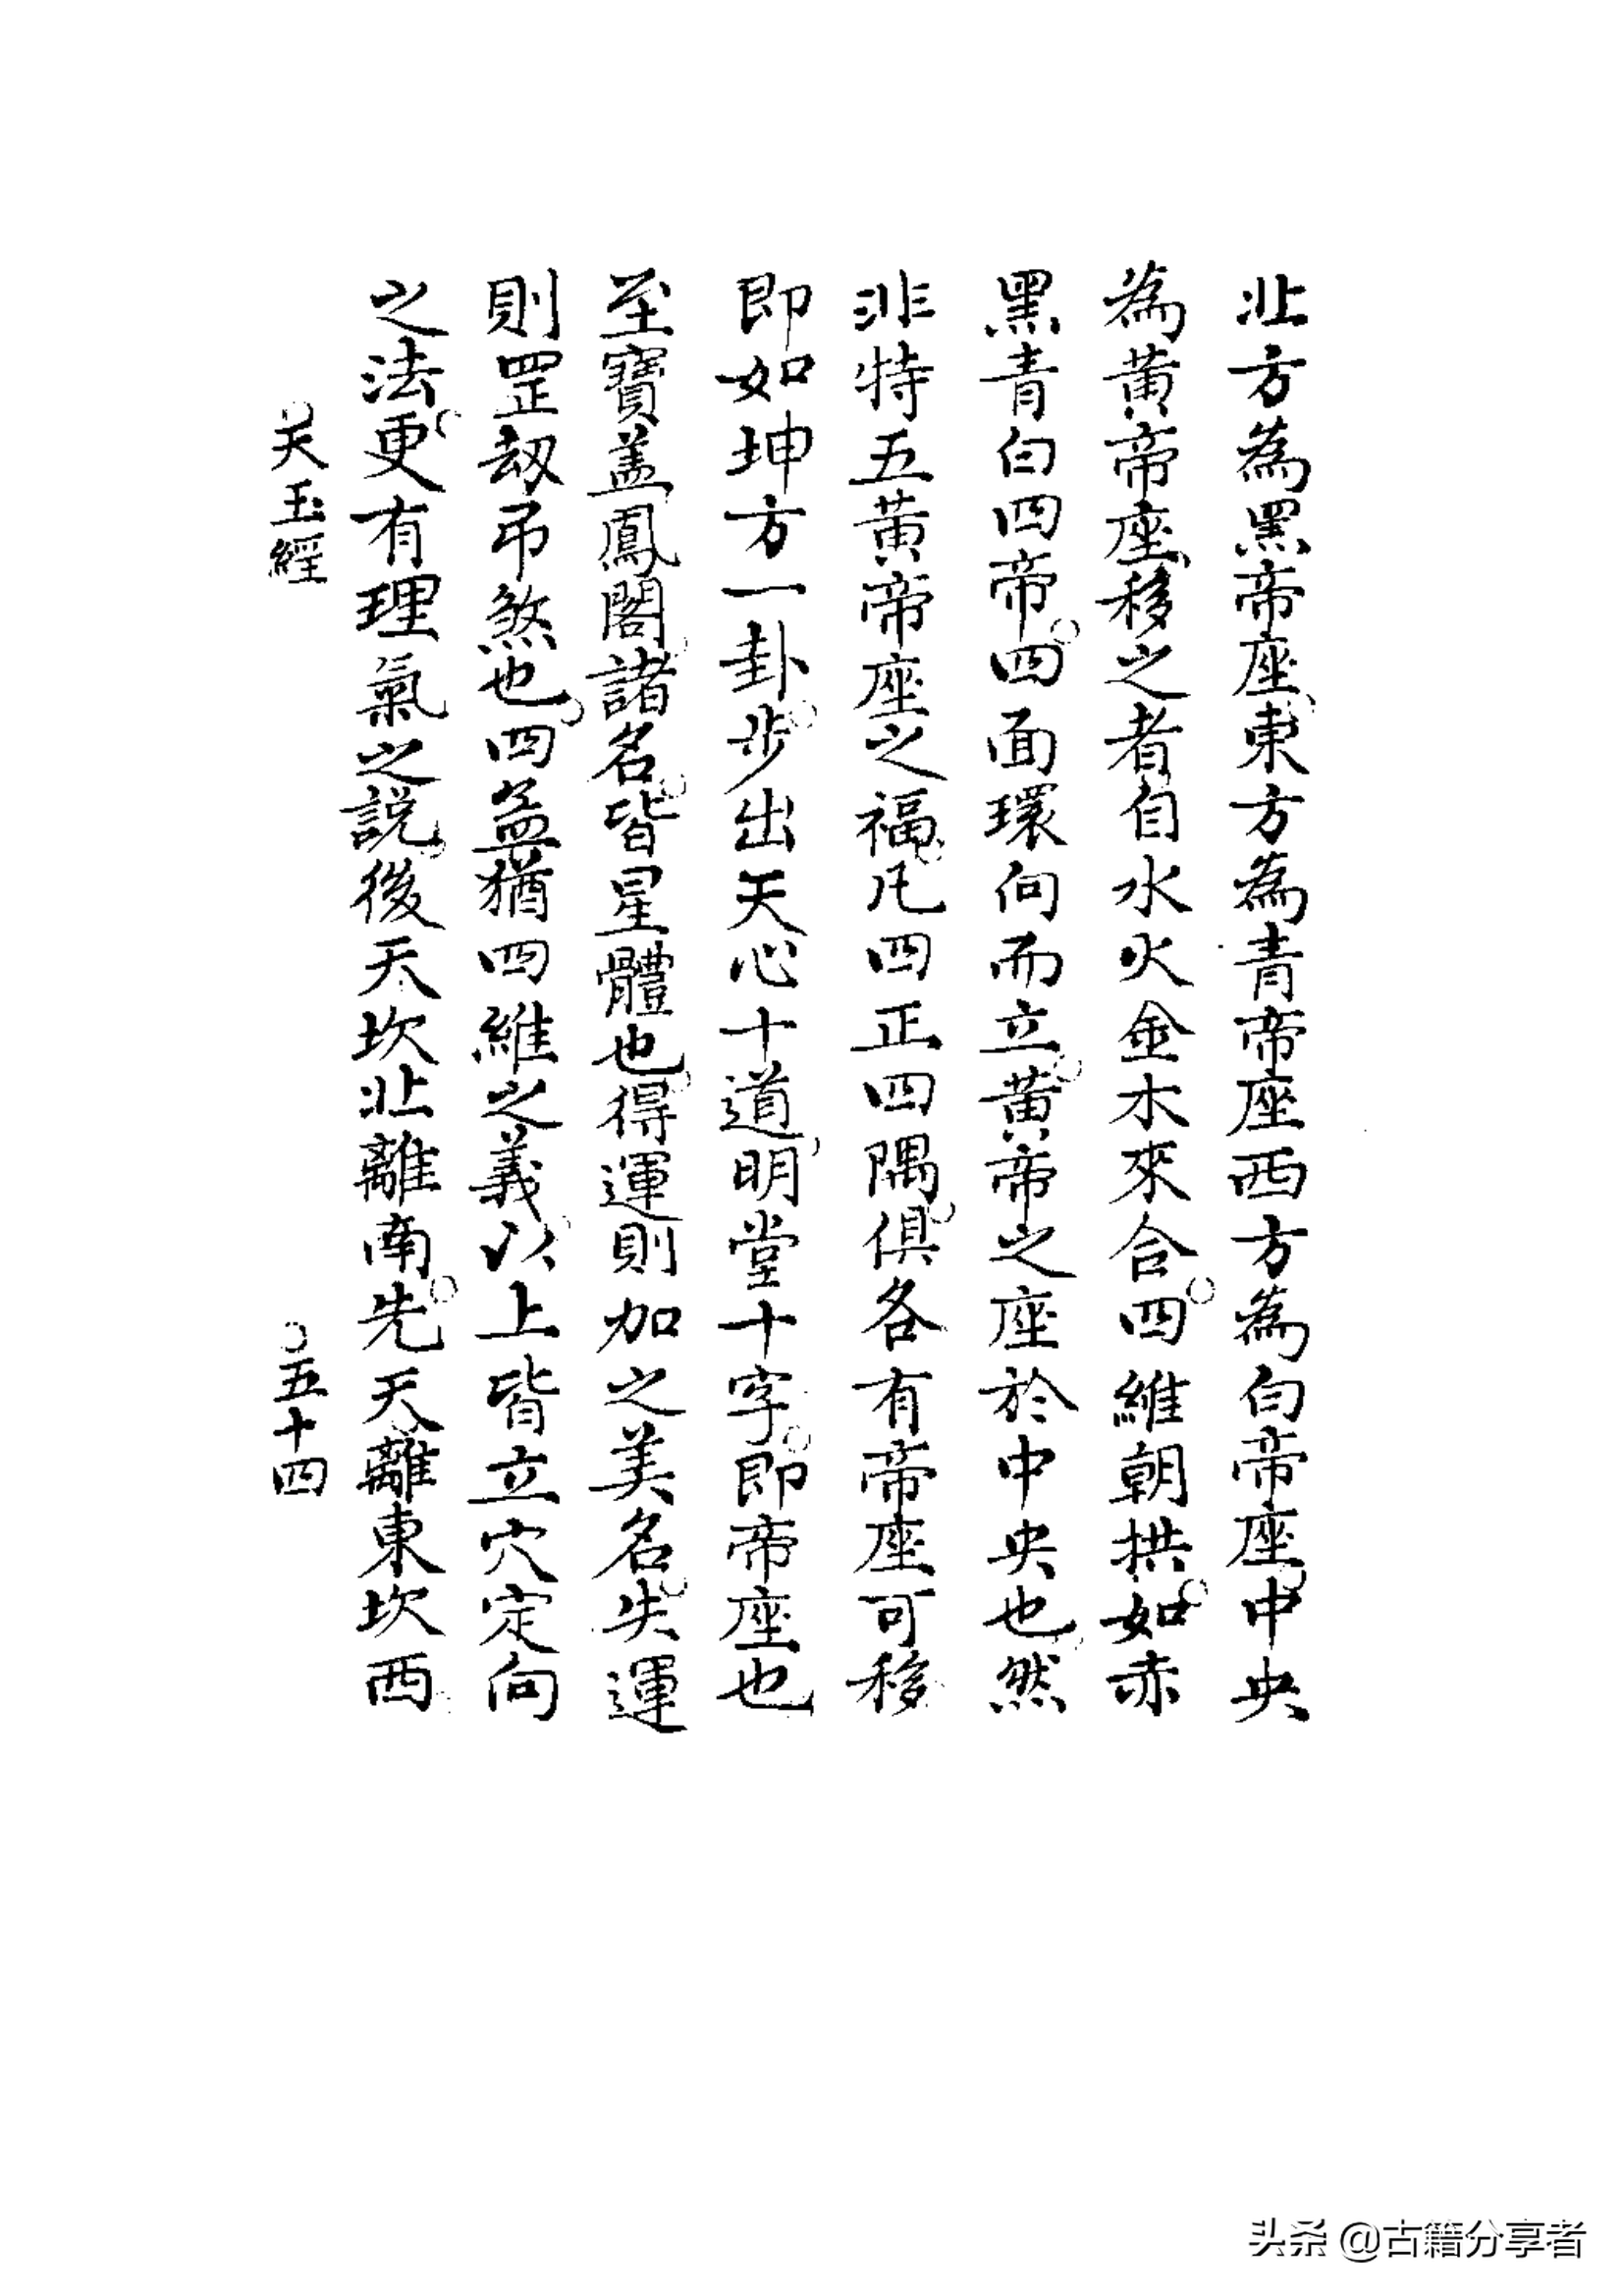 北方為黑帝座東方為青帝座西方為白帝座中央
為黃帝座移之者自水火金木來合四維朝拱如赤
黑青白四帝四面環向而立黃帝之座於中央也然
非特五黃帝座之福凡四正四隅俱各有帝座可移
即如坤方一卦步出天心十道明堂十字即帝座也
至寶盖鳳閣諸名皆星體也得運則加之美名失運
則罡刼吊煞也四孟猶四維之義以上皆立穴定向
之法更有理氣之説後天坎北離南先天離東坎西
天玉經
五十四
头条 @古籍分享者